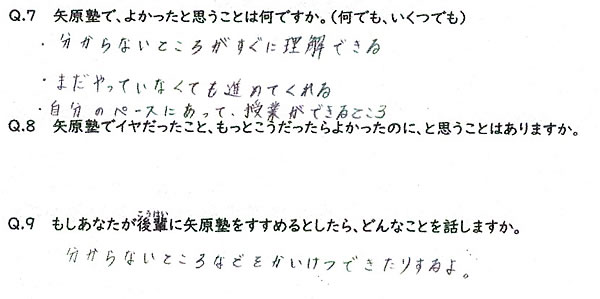 Q.7 矢原塾で、よかったと思うことは何ですか。(何でも、いくつでも)
・分からないところがすぐに理解できる
・まだやっていなくても進めてくれる
・自分のペースにあって、授業ができるところ
Q.8 矢原塾でイヤだったこと、もっとこうだったらよかったのに、と思うことはありますか。
こうはい
Q.9 もしあなたが後輩に矢原塾をすすめるとしたら、どんなことを話しますか。
分からないところなどをかいけつできたりするよ。